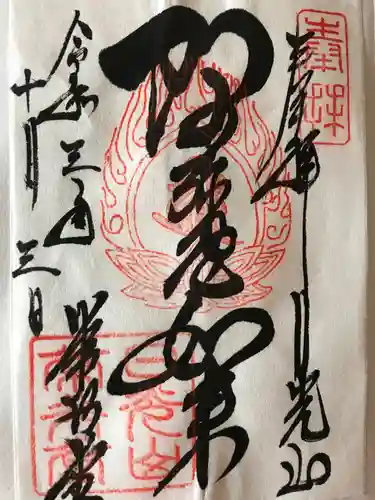 奉拝
日光山
阿弥陀如来
令和三年
十月三日
常行堂